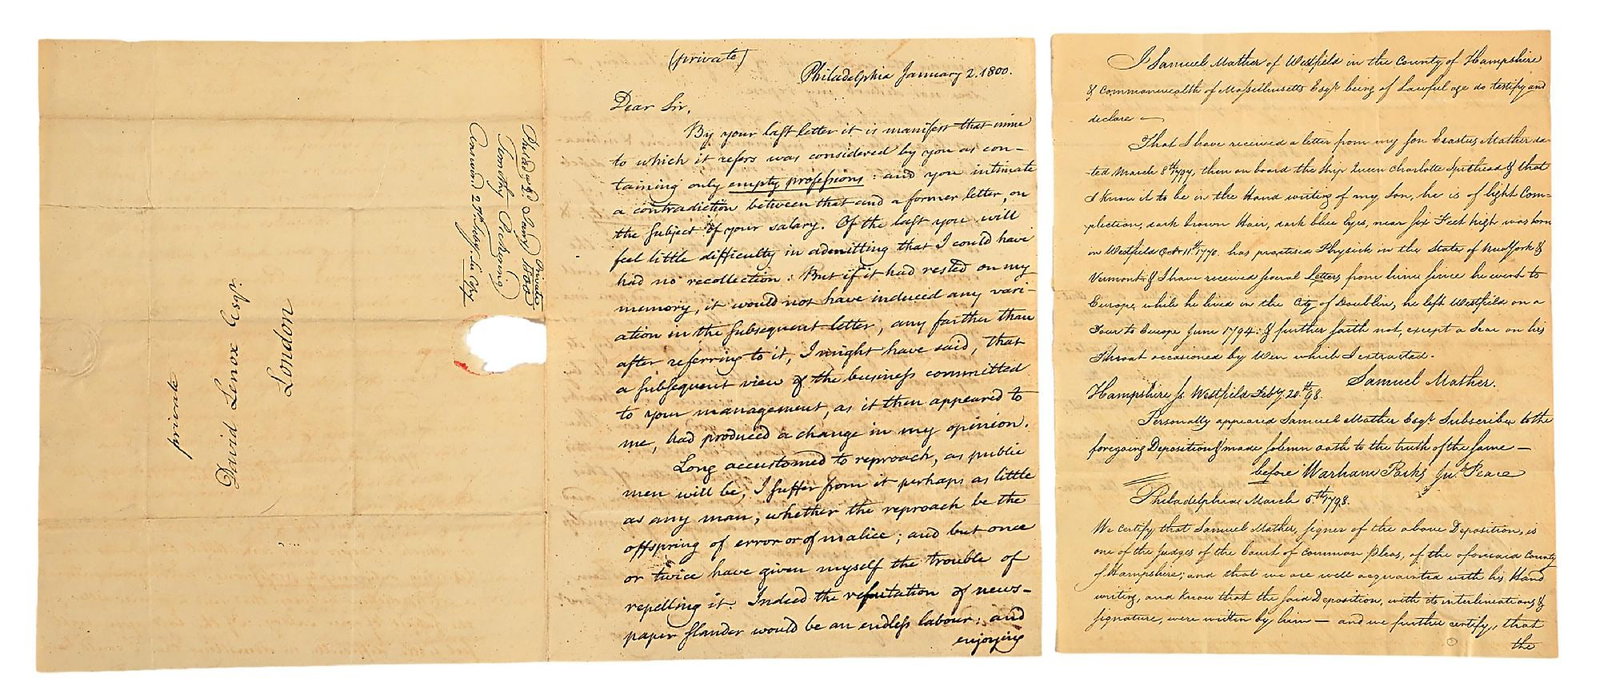 private
David Lenox Esqr.
London
Philada.
Timothy Pickering
(private)
Philadelphia January 2. 1800.
Dear Sir,
By your last letter it is manifest that mine
to which it refers was considered by you as con-
taining only empty professions: and you intimate
a contradiction between that and a former letter, on
the subject of your salary. Of the last you will
feel little difficulty in admitting that I could have
had no recollection: But if it had rested on my
memory, it would not have induced any vari-
ation in the subsequent letter, any farther than
after referring to it, I might have said, that
a subsequent view of the business committed
to your management, as it then appeared to
me, had produced a change in my opinion.
Long accustomed to reproach, as public
men will be, I suffer from it perhaps as little
as any man, whether the reproach be the
offspring of error or of malice; and but once
or twice have given myself the trouble of
repelling it. Indeed the refutation of news-
paper slander would be an endless labour; and
enjoying
I Samuel Mather of Westfield in the County of Hampshire
& Commonwealth of Massachusetts Esqr. being of Lawful age do testify and
declare —
That I have received a letter from my son Erastus Mather da-
ted March 8th 1797, then on board the ship Queen Charlotte Spithead & that
I know it to be in the Hand writing of my Son, he is of light Com-
plection, dark brown Hair, dark blue Eyes, near six Feet high was born
in Westfield Octr. 11th 1770. has practised Physick in the State of NewYork &
Vermont & I have received several Letters from him since he went to
Europe while he lived in the City of Doublin, he left Westfield on a
Tour to Europe June 1794: & further saith not, except a Scar on his
Throat occasioned by Wen which I extracted.
Samuel Mather.
Hampshire ss. Westfield Feby. 20th 98.
Personally appeared Samuel Mather Esqr. Subscriber to the
foregoing Deposition & made solemn oath to the truth of the same —
before Warham Parks Jus. Peace
Philadelphia March 5th 1798.
We certify that Samuel Mather, signer of the above Deposition, is
one of the Judges of the Court of Common Pleas, of the aforesaid County
of Hampshire; and that we are well acquainted with his Hand
writing, and know that the said Deposition, with its interlineations &
signature, were written by him — and we further certify, that
the